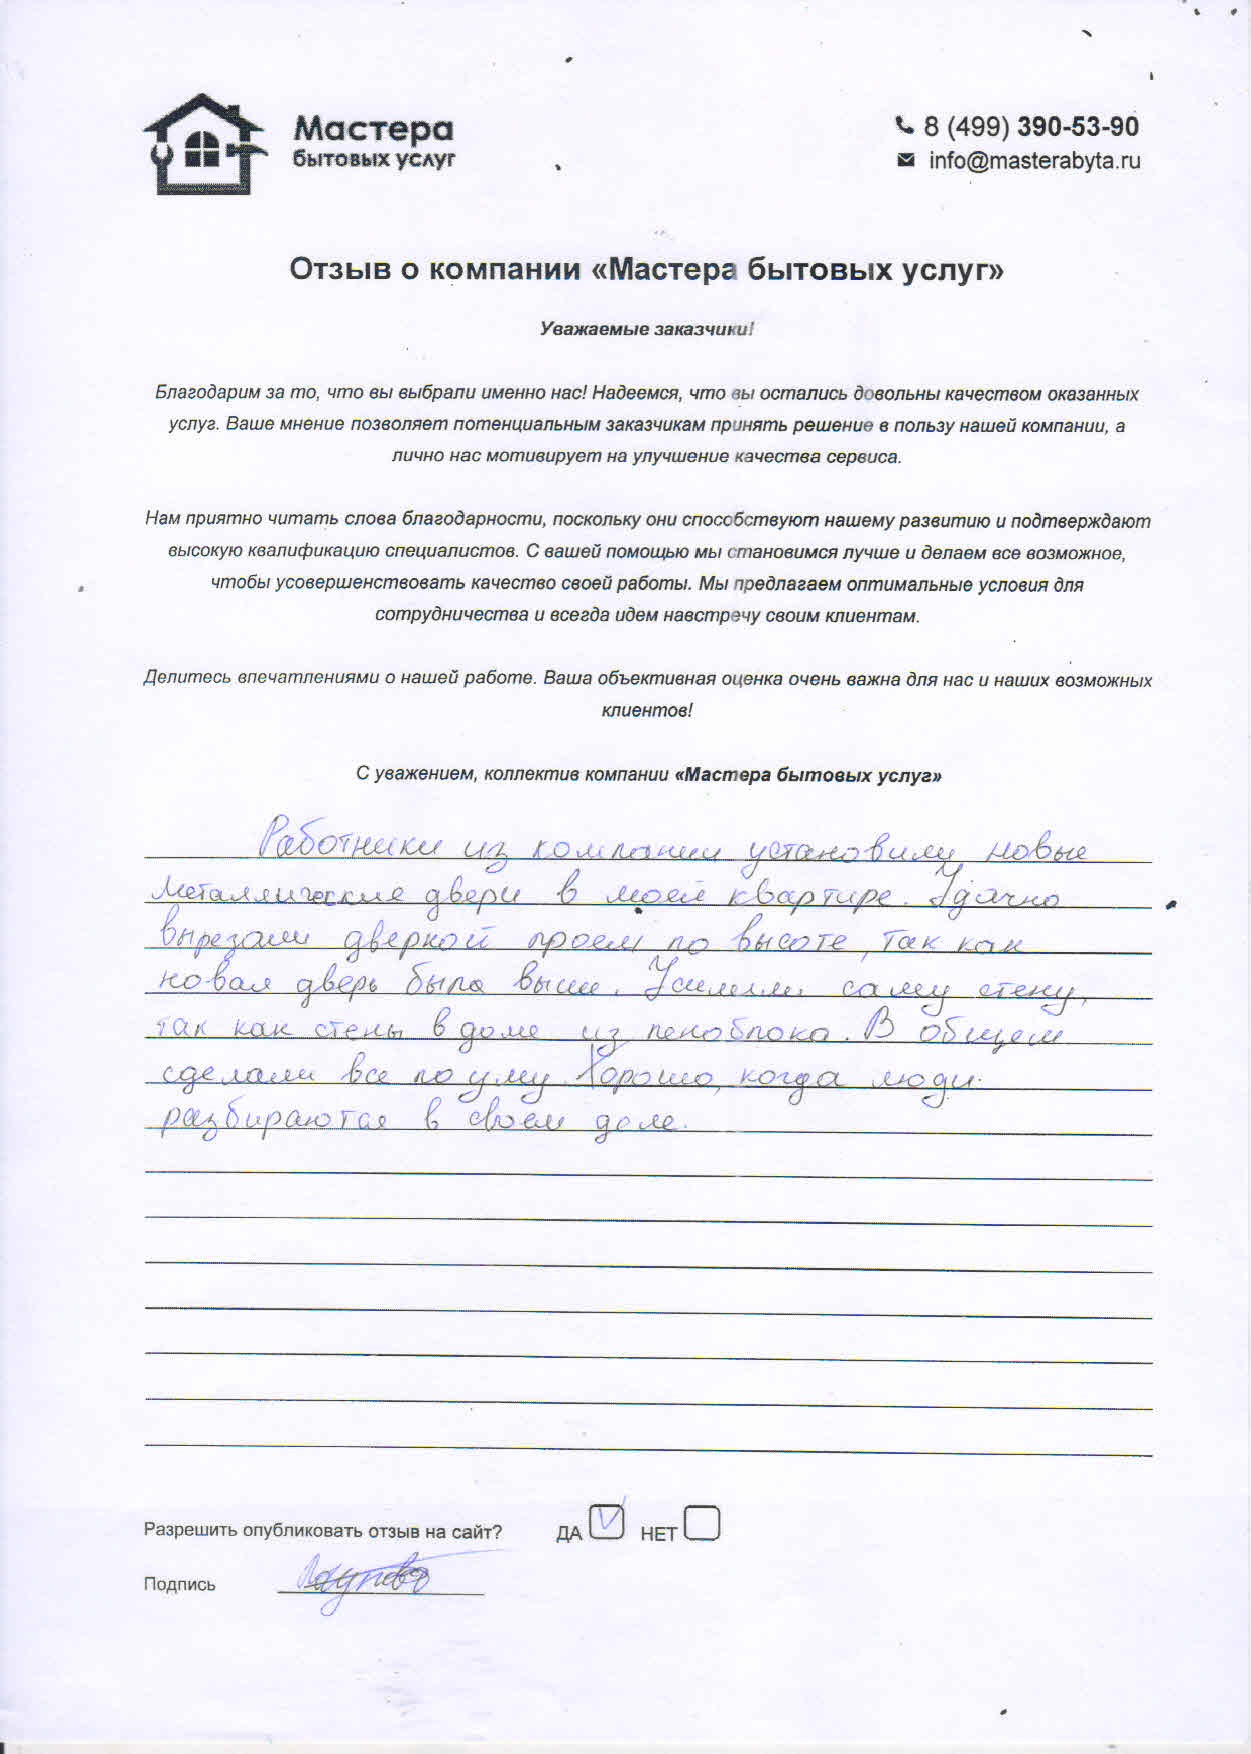 Мастера
бытовых услуг
8 (499) 390-53-90
info@masterabyta.ru
Отзыв о компании «Мастера бытовых услуг»
Уважаемые заказчики!
Благодарим за то, что вы выбрали именно нас! Надеемся, что вы остались довольны качеством оказанных
услуг. Ваше мнение позволяет потенциальным заказчикам принять решение в пользу нашей компании, а
лично нас мотивирует на улучшение качества сервиса.
Нам приятно читать слова благодарности, поскольку они способствуют нашему развитию и подтверждают
высокую квалификацию специалистов. С вашей помощью мы становимся лучше и делаем все возможное,
чтобы усовершенствовать качество своей работы. Мы предлагаем оптимальные условия для
сотрудничества и всегда идем навстречу своим клиентам.
Делитесь впечатлениями о нашей работе. Ваша объективная оценка очень важна для нас и наших возможных
клиентов!
С уважением, коллектив компании «Мастера бытовых услуг»
Работники из компании установили новые
металлические двери в моей квартире. Удачно
вырезали дверной проем по высоте, так как
новая дверь была выше. Усилили саму стену,
так как стены в доме из пеноблока. В общем
сделали все по уму. Хорошо, когда люди
разбираются в своем деле.
Разрешить опубликовать отзыв на сайт? ДА НЕТ
Подпись